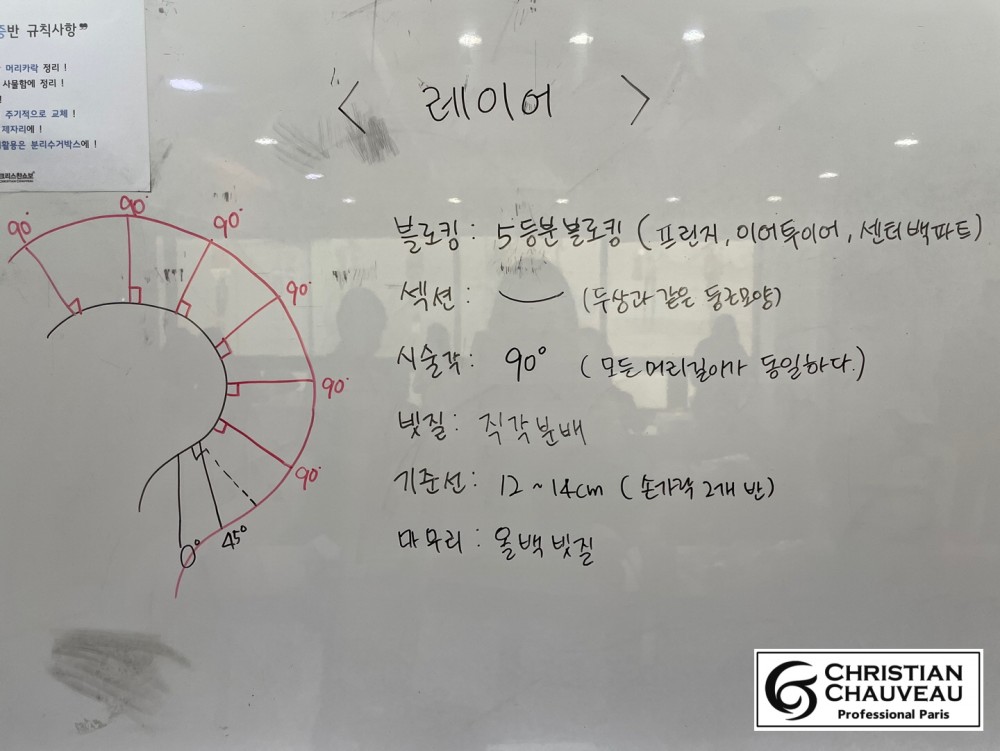 중반 규칙사항"
머리카락 정리 !
사물함에 정리 !
주기적으로 교체 !
제자리에 !
활용은 분리수거박스에 !
< 레이어 >
90°
90°
90°
90°
90°
90°
45°
0°
블로킹 : 5등분 블로킹 ( 프린지, 이어투이어, 센터백파트)
섹션 : (두상과 같은 둥근모양)
시술각 : 90° ( 모든 머리길이가 동일하다.)
빗질 : 직각분배
기준선 : 12 ~ 14cm ( 손가락 2개 반)
마무리 : 올백 빗질
CHRISTIAN
CHAUVEAU
Professional Paris